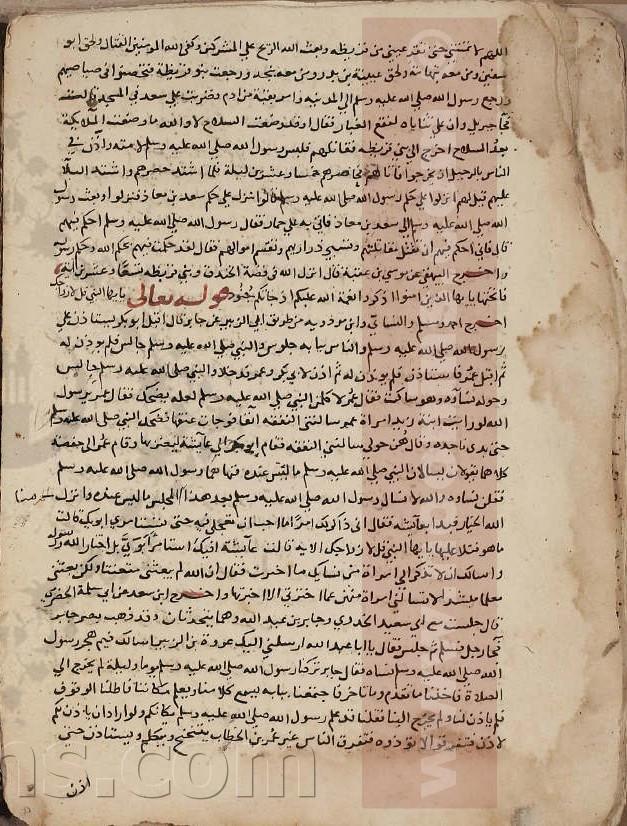 اللهم لا تمتني حتى تقر عيني من قريظه وبعث الله الريح علي المشركين وكفي الله المومنين القتال ولحق ابو
سفين ومن معه بتهامة ولحق عيينة بن بدر ومن معه بنجد ورجعت بنو قريظة فتحصنوا في صياصيهم
ورجع رسول الله صلي الله عليه وسلم الي المدينه وامر بقبة من ادم فضربت علي سعد في المسجد قالت
فجا جبريل وان علي ثناياه لنقع الغبار فقال او قد وضعت السلاح لا والله ما وضعت الملايكة
بعد السلاح اخرج الي بني قريظه فقاتلهم فلبس رسول الله صلي الله عليه وسلم لامته واذن في
الناس بالرحيل ان يخرجوا فاتاهم فحاصرهم خمسا وعشرين ليلة فلما اشتد حصرهم واشتد البلا
عليهم قيل لهم انزلوا علي حكم رسول الله صلي الله عليه وسلم قالوا ننزل علي حكم سعد بن معاذ فنزلوا وبعث رسول
الله صلي الله عليه وسلم الي سعد بن معاذ فاتي به علي حمار فقال رسول الله صلي الله عليه وسلم احكم فيهم
قال فاني احكم فيهم ان تقتل مقاتلتهم وتسبي ذراريهم وتقسم اموالهم فقال لقد حكمت فيهم بحكم الله وحكم رسوله
واخرج البيهقي عن موسي بن عقبة قال انزل الله في قصة الخندق وبني قريظه تسعا وعشرين اية
فاتحتها يايها الذين امنوا اذكروا نعمة الله عليكم اذ جاتكم جنود قوله تعالى يايها النبي قل لازواجك
اخرج احمد ومسلم والنسائي وابن مردويه من طريق ابي الزبير عن جابر قال اقبل ابو بكر يستاذن علي
رسول الله صلي الله عليه وسلم والناس ببابه جلوس والنبي صلي الله عليه وسلم جالس فلم يوذن له
ثم اقبل عمر فاستاذن فلم يوذن له ثم اذن لابي بكر وعمر فدخلا والنبي صلي الله عليه وسلم جالس
وحوله نساؤه وهو ساكت فقال عمر لاكلمن النبي صلي الله عليه وسلم لعله يضحك فقال عمر يرسول
الله لو رايت ابنة زيد امراة عمر سالتني النفقه انفا فوجات عنقها فضحك النبي صلي الله عليه وسلم
حتى بدى ناجذه وقال هن حولي سالنني النفقه فقام ابو بكر الي عايشة ليضربها وقام عمر الي حفصة
كلاهما يقولان تسالان النبي صلي الله عليه وسلم ما ليس عنده فنهاهما رسول الله صلي الله عليه وسلم
فقلن نساوه والله لا نسال رسول الله صلي الله عليه وسلم بعد هذا المجلس ما ليس عنده وانزل
الله الخيار فبدا بعائشه فقال اني ذاكر لك امرا ما احب ان تعجلي فيه حتى تستامري ابويك قالت
ما هو فتلا عليها يايها النبي قل لازواجك الاية قالت عائشة افيك استامر ابوي بل اختار الله ورسوله
واسالك ان لا تذكر الي امراة من نسايك ما اخترت فقال ان الله لم يبعثني متعنتا ولكن بعثني
معلما ميسرا لا تسالني امراة منهن عما اخترتي الا اخبرتها واخرج ابن سعد عن ابي سلمة الحضرمي
قال جلست مع ابي سعيد الخدري وجابر بن عبد الله وهما يتحدثان وقد ذهب بصر جابر
فجا رجل فسلم ثم جلس فقال يا ابا عبد الله ارسلني اليك عروة بن الزبير اسالك فيم هجر رسول
الله صلي الله عليه وسلم نساه فقال جابر تركنا رسول الله صلي الله عليه وسلم يوما وليلة لم يخرج الي
الصلاة فاخذنا ما تقدم وما تاخر فاجتمعنا ببابه يسمع كلامنا ويعلم مكاننا فاطلنا الوقوف
فلم ياذن لنا ولم يخرج الينا فقلنا قد علم رسول الله صلي الله عليه وسلم مكانكم ولو اراد ان ياذن لكم
لاذن فتفرقوا لا تؤذوه فتفرق الناس غير عمر بن الخطاب يتنحنح ويتكلم ويستاذن حتى
اذن